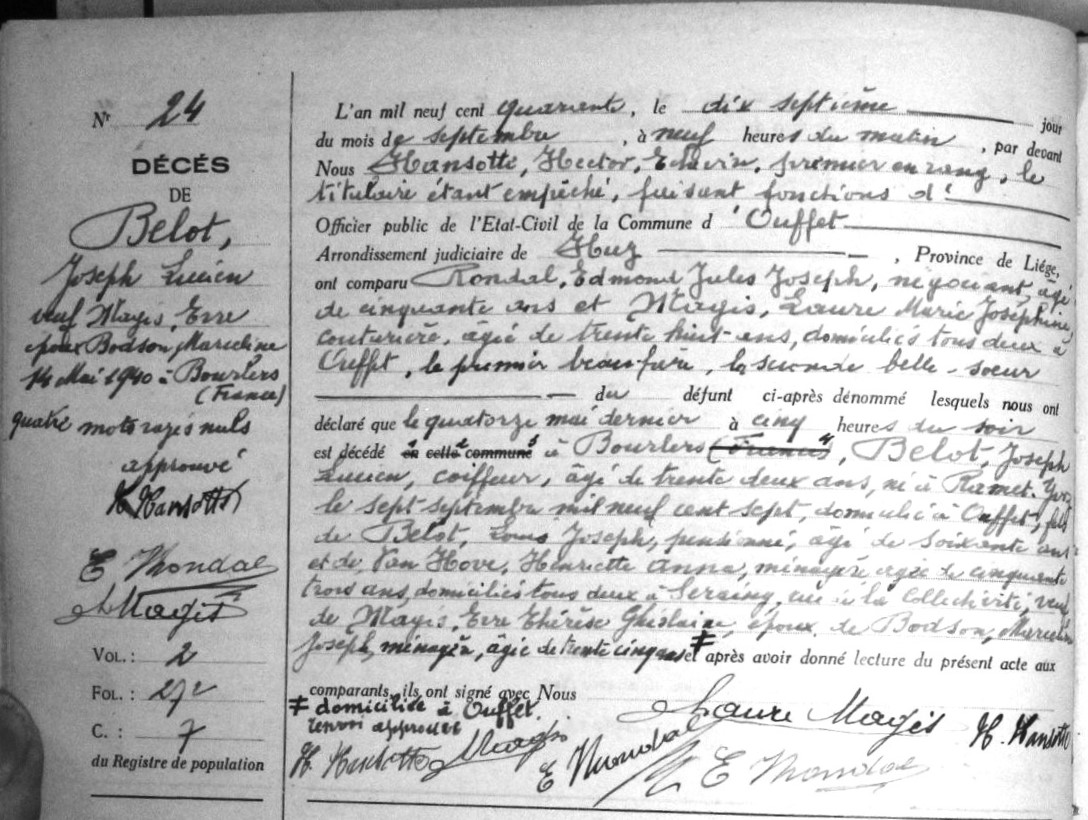 Nr 24
DÉCÉS
DE
Belot,
Joseph Lucien
veuf Magis, Erre
époux Bodson, Marceline
14 Mai 1940 à Bourlers
(France)
quatre mots rayés nuls
approuvé
H Hansotte
E Rondal
L Magis
VOL.: 2
FOL.: 272
C. : 7
du Registre de population
L'an mil neuf cent quarante, le dix septième jour
du mois de septembre, à neuf heures du matin, par devant
Nous Hansotte, Hector, Echevin, premier en rang, le
titulaire étant empêché, faisant fonctions d'
Officier public de l'Etat-Civil de la Commune d'Ouffet
Arrondissement judiciaire de Huy, Province de Liége,
ont comparu Rondal, Edmond Jules Joseph, négociant, âgé
de cinquante ans et Magis, Laure Marie Joséphine,
couturière, âgée de trente huit ans, domiciliés tous deux à
Ouffet, le premier beau-frère, la seconde belle-soeur
du défunt ci-après dénommé lesquels nous ont
déclaré que le quatorze mai dernier à cinq heures du soir
est décédé en cette commune à Bourlers (France), Belot, Joseph
Lucien, coiffeur, âgé de trente deux ans, né à Ramet-Yvoz
le sept septembre mil neuf cent sept, domicilié à Ouffet, fils
de Belot, Louis Joseph, pensionné, âgé de soixante ans
et de Van Hove, Henriette Anna, ménagère âgée de cinquante
trois ans, domiciliés tous deux à Seraing, rue de la Collectivité, veuf
de Magis, Erre Thérèse Ghislaine, époux de Bodson, Marceline
Joseph, ménagère, âgée de trente cinq ans et ≠ après avoir donné lecture du présent acte aux
comparants, ils ont signé avec Nous
≠ domiciliée à Ouffet.
renvoi approuvé
H. Hansotte L Magis
E Rondal
Laure Magis
E Rondal
H. Hansotte